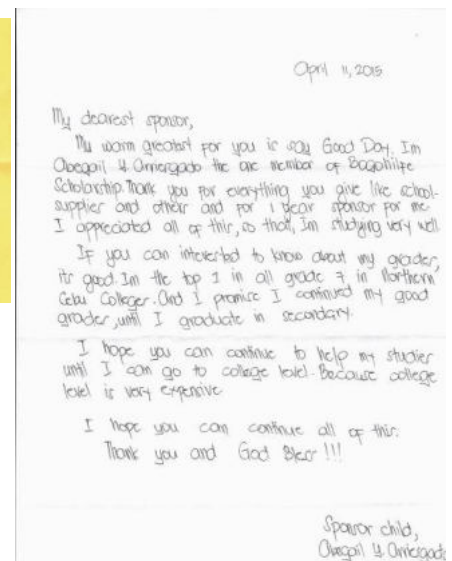 April 11, 2015
My dearest sponsor,
My warm greatest for you is say Good Day. Im
Abegail Y. Arriesgado the one member of Bagohilfe
Scholarship. Thank you for everything you give like school-
supplies and others and for 1 year sponsor for me.
I appreciated all of this, so that, Im studying very well.
If you can interested to know about my grades,
its good. Im the top 1 in all grade 7 in Northern
Cebu Colleges. And I promise I continued my good
grades, until I graduate in secondary.
I hope you can continue to help my studies
until I can go to college level. Because college
level is very expensive.
I hope you can continue all of this.
Thank you and God Bless !!!
Sponsor child,
Abegail Y. Arriesgado